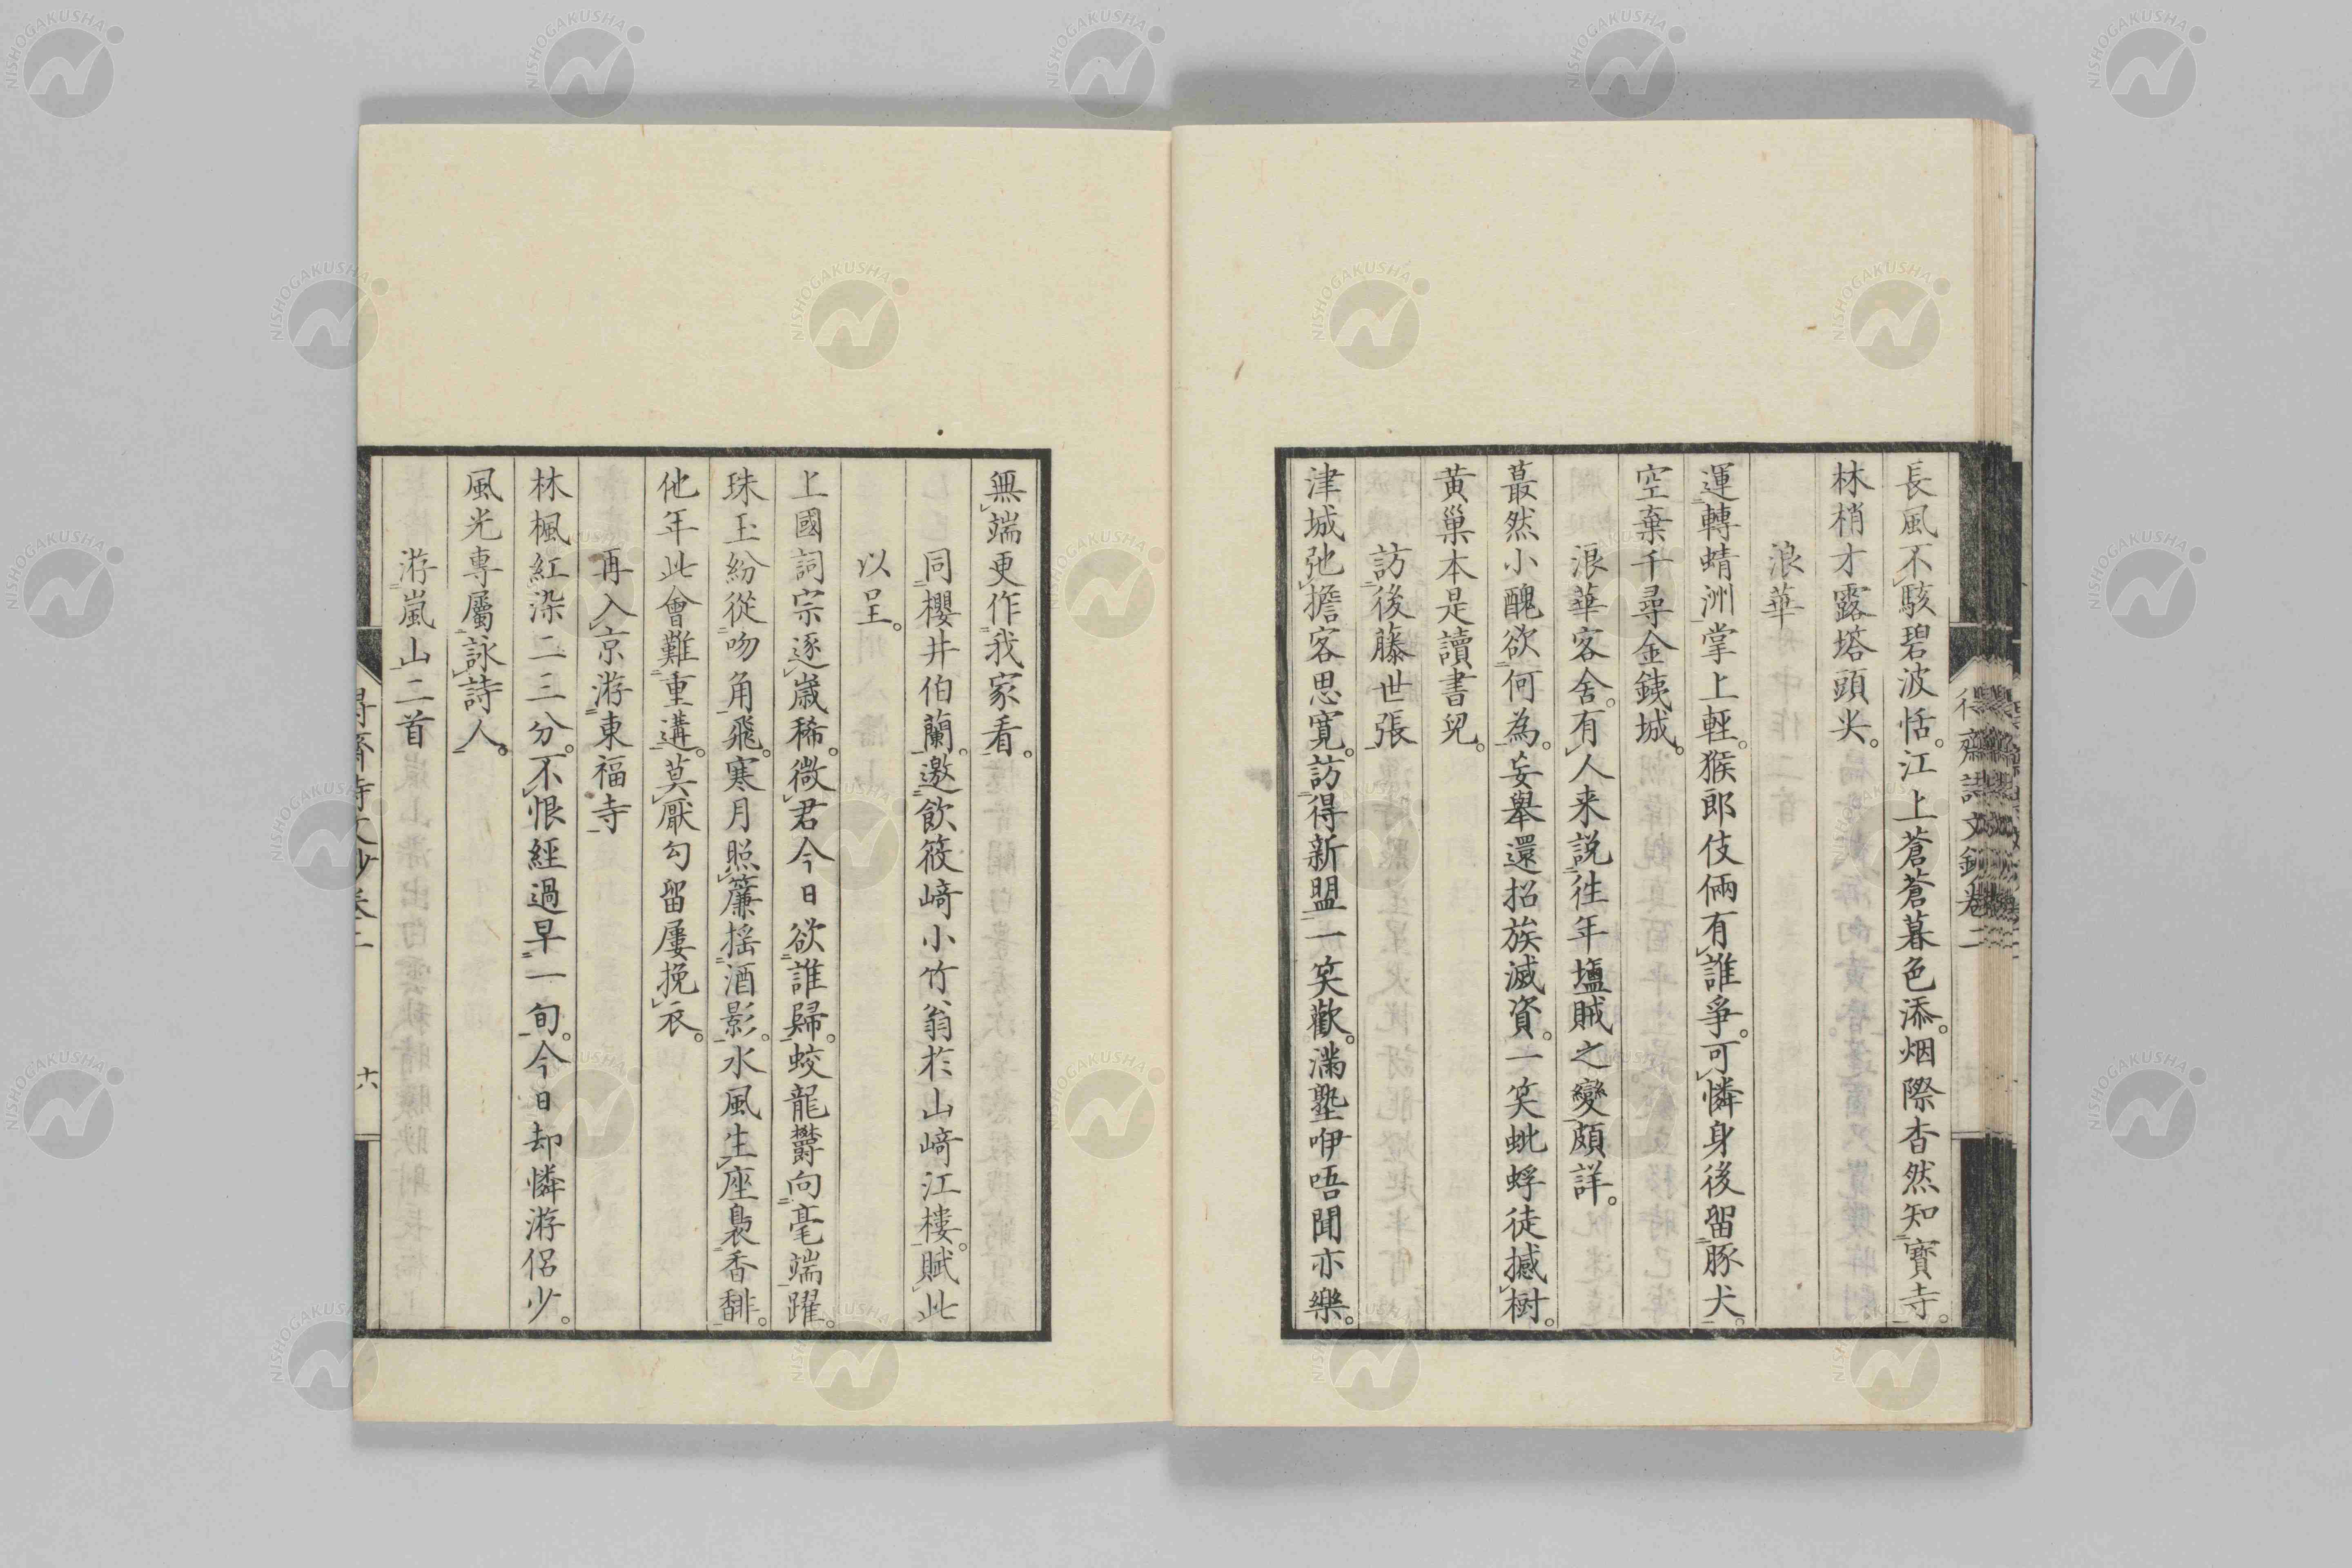 長風不駭碧波恬。江上蒼蒼暮色添。烟際杳然知寶寺。
林梢才露塔頭尖。
浪華
運轉蜻洲掌上輕。猴郎伎倆有誰爭。可憐身後留豚犬。
空棄千尋金鐵城。
浪華客舍。有人来説往年塩賊之變頗詳。
蕞然小醜欲何為。妄舉還招族滅資。一笑蚍蜉徒撼樹。
黃巢本是讀書兒。
訪後藤世張
津城弛擔客思寬。訪得新盟一笑歡。滿塾咿唔聞亦樂。
無端更作我家看。
同櫻井伯蘭。邀飲筱﨑小竹翁於山﨑江樓。賦此
以呈。
上國詞宗逐歲稀。微君今日欲誰歸。蛟龍欝向毫端躍。
珠玉紛從吻角飛。寒月照簾搖酒影。水風生座裊香馡。
他年此會難重遘。莫厭勾留屢挽衣。
再入京游東福寺
林楓紅染二三分。不恨經過早一旬。今日却憐游侶少。
風光專屬詠詩人。
游嵐山二首
十六
NISHOGAKUSHA